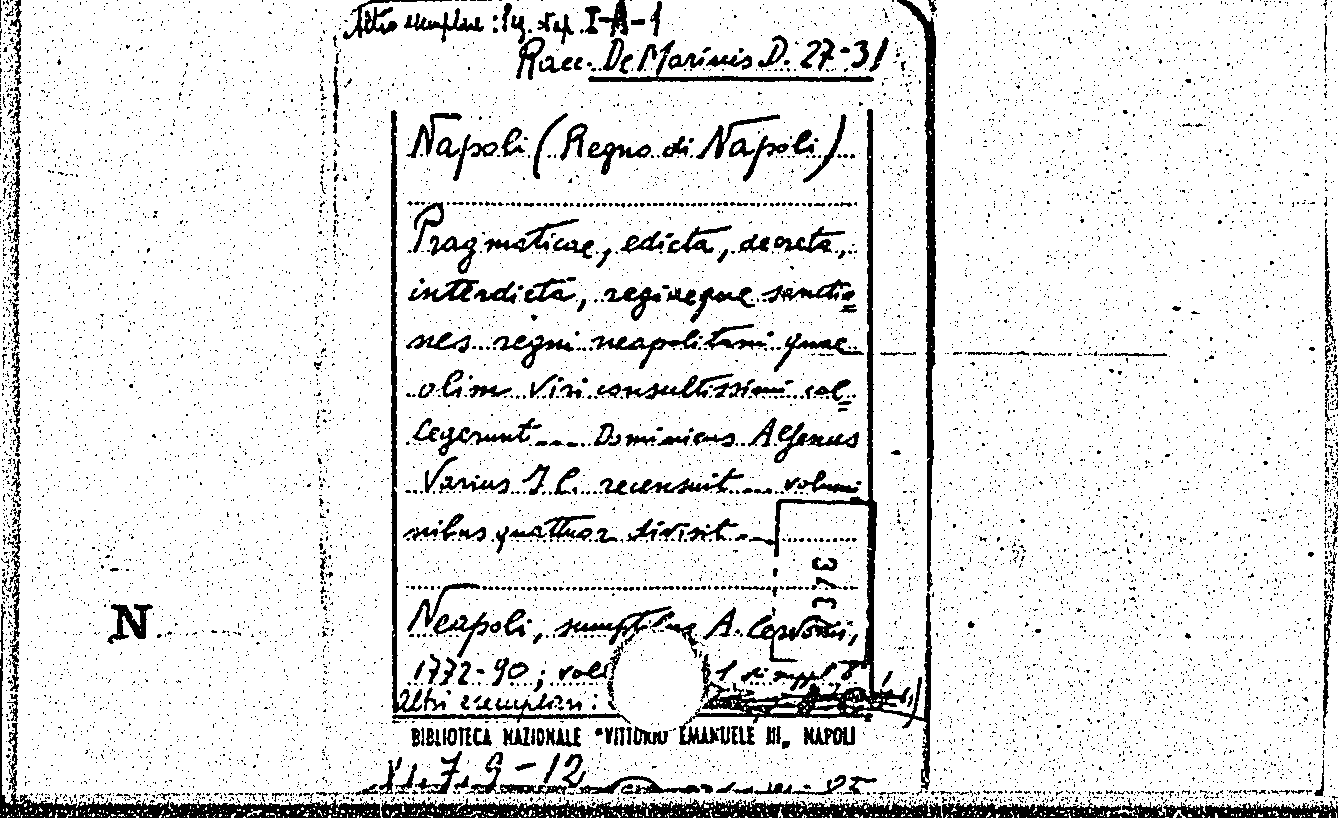 Altro esemplare: Leg. nap. I-A-1
Racc. De Marinis D. 27-31
Napoli (Regno di Napoli)
Pragmaticae, edicta, decreta,
interdicta, regiaeque sanctio=
nes regni neapolitani quae
olim viri consultissimi col=
legerunt... Dominicus Alfenus
Varius I.C. recensuit ... volumi
nibus quattuor divisit ...
3473
N
Neapoli, sumptibus A. Cervonii,
1772-90; vol. 1 di suppl. 8°
Altri esemplari:
BIBLIOTECA NAZIONALE "VITTORIO EMANUELE III„ NAPOLI
7. G - 12